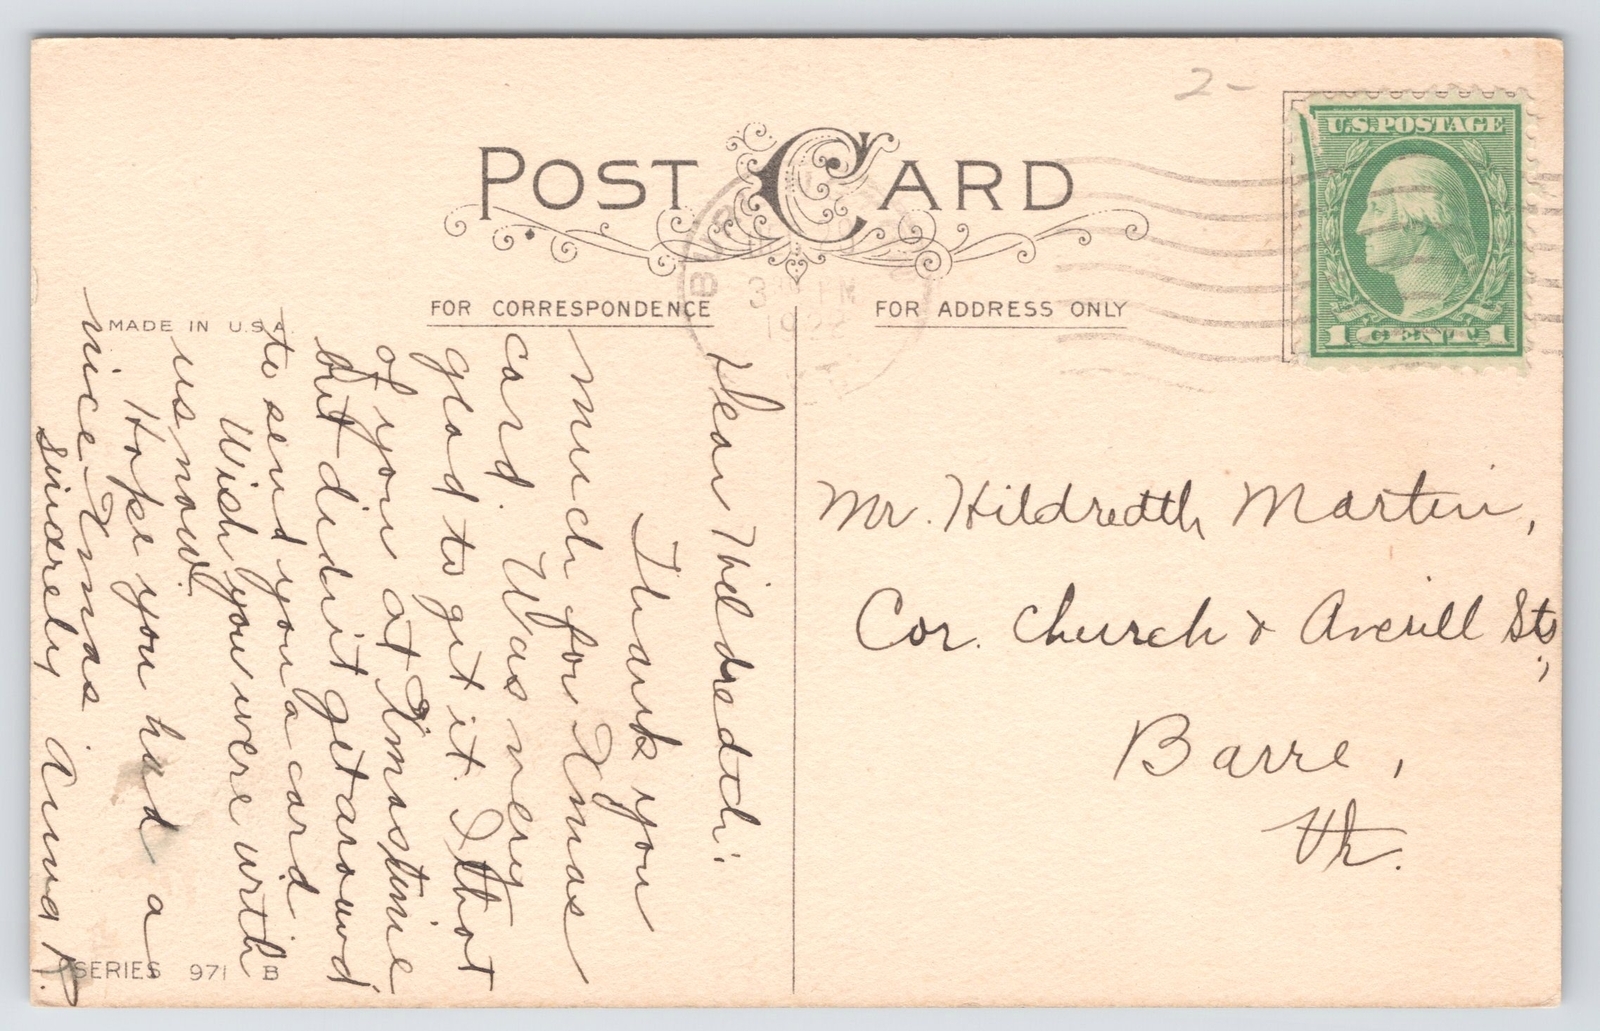 2-
POST CARD
U.S. POSTAGE
1 CENT 1
3 PM
FOR CORRESPONDENCE
FOR ADDRESS ONLY
MADE IN U.S.A.
Dear Hildredth:
Thank you
much for Xmas
card. Was very
glad to get it. I thot
of you at Xmastime
but didn't get around
to send you a card
Wish you were with
us now.
Hope you had a
nice Xmas
Sincerely Anna P.
Mr. Hildredth Martin,
Cor. Church & Averill Sts,
Barre,
Vt.
SERIES 971 B